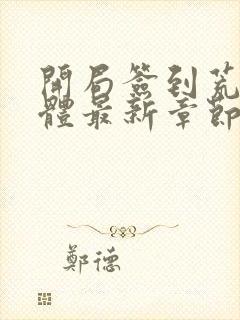 開局簽到荒
體最新章節
鄭德